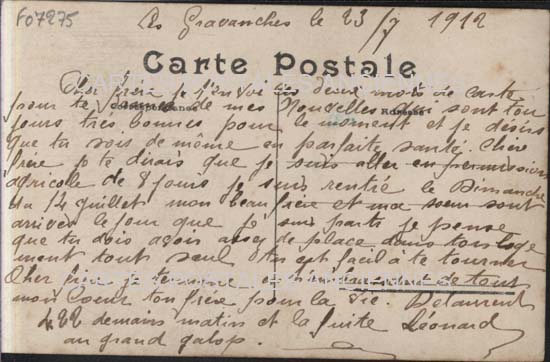 F07275
Les Gravanches le 23/7 1912
Carte Postale
Cher frère je t'envoie ces deux mots de carte
pour te donner de mes Nouvelles qui sont tou
Correspondance Adresse
jours très bonnes pour le moment et je désire
que tu sois de même en parfaite santé. Cher
frère je te dirais que je suis aller en permission
agricole de 8 jours je suis rentré le Dimanche
du 14 quillet mon beau frère et ma sœur sont
arriver le jour que je suis parti je pense
que tu dois avoir assez de place dans ton loge
ment tout seul tu est facil à te tourner
Cher frère je termine en de tout
mon Cœur ton frère pour la vie. Delaurent
422 demains matins et la fuite Léonard
au grand galop.